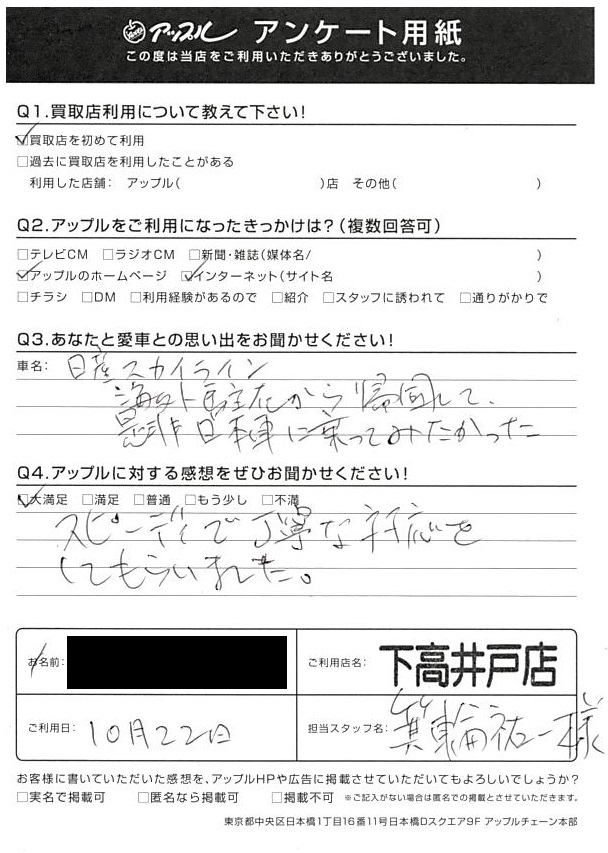 アップル アンケート用紙
この度は当店をご利用いただきありがとうございました。
Q1.買取店利用について教えて下さい!
☑買取店を初めて利用
□過去に買取店を利用したことがある
利用した店舗: アップル( )店 その他( )
Q2.アップルをご利用になったきっかけは?(複数回答可)
□テレビCM □ラジオCM □新聞・雑誌(媒体名/ )
☑アップルのホームページ ☑インターネット(サイト名 )
□チラシ □DM □利用経験があるので □紹介 □スタッフに誘われて □通りがかりで
Q3.あなたと愛車との思い出をお聞かせください!
車名: 日産スカイライン
海外駐在から帰国して、
是非日本車に乗ってみたかった
Q4.アップルに対する感想をぜひお聞かせください!
☑大満足 □満足 □普通 □もう少し □不満
スピーディで丁寧な対応を
してもらいました。
お名前:
ご利用店名: 下高井戸店
ご利用日: 10月22日
担当スタッフ名: 箕輪祐一様
お客様に書いていただいた感想を、アップルHPや広告に掲載させていただいてもよろしいでしょうか?
□実名で掲載可 □匿名なら掲載可 □掲載不可 ※ご記入がない場合は匿名での掲載とさせていただきます。
東京都中央区日本橋1丁目16番11号日本橋Dスクエア9F アップルチェーン本部